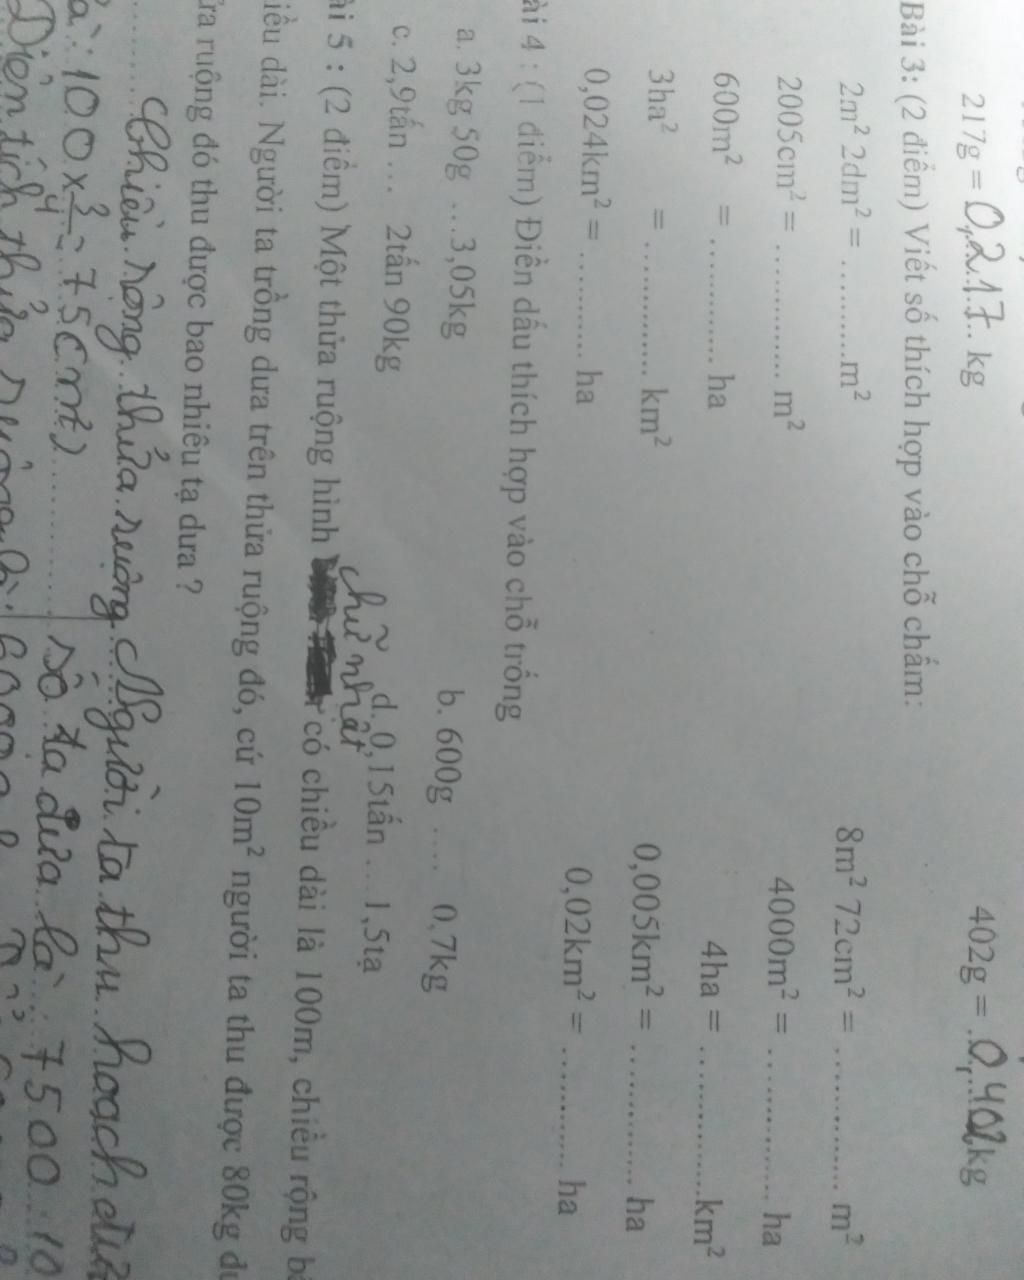 217g = 0,217 kg 402g = 0,402 kg
Bài 3: (2 điểm) Viết số thích hợp vào chỗ chấm:
2m² 2dm² = ..........m² 8m² 72cm² = .............. m²
2005cm² = .............. m² 4000m² = .............. ha
600m² = ............ ha 4ha = ..............km²
3ha² = ............ km² 0,005km² = .............. ha
0,024km² = ........... ha 0,02km² = ............ ha
ài 4 : (1 điểm) Điền dấu thích hợp vào chỗ trống
a. 3kg 50g ...3,05kg b. 600g .... 0,7kg
c. 2,9tấn ... 2tấn 90kg d. 0,15tấn ...1,5tạ
chữ nhật
ài 5 : (2 điểm) Một thửa ruộng hình có chiều dài là 100m, chiều rộng
iều dài. Người ta trồng dưa trên thửa ruộng đó, cứ 10m² người ta thu được 80kg
ửa ruộng đó thu được bao nhiêu tạ dưa ?
Chiều rộng thửa ruộng Người ta thu hoạch
à: 100 x 3/4 = 75 (m²) số tạ dưa là 7500 : 10
Diện tích thửa ruộng là: